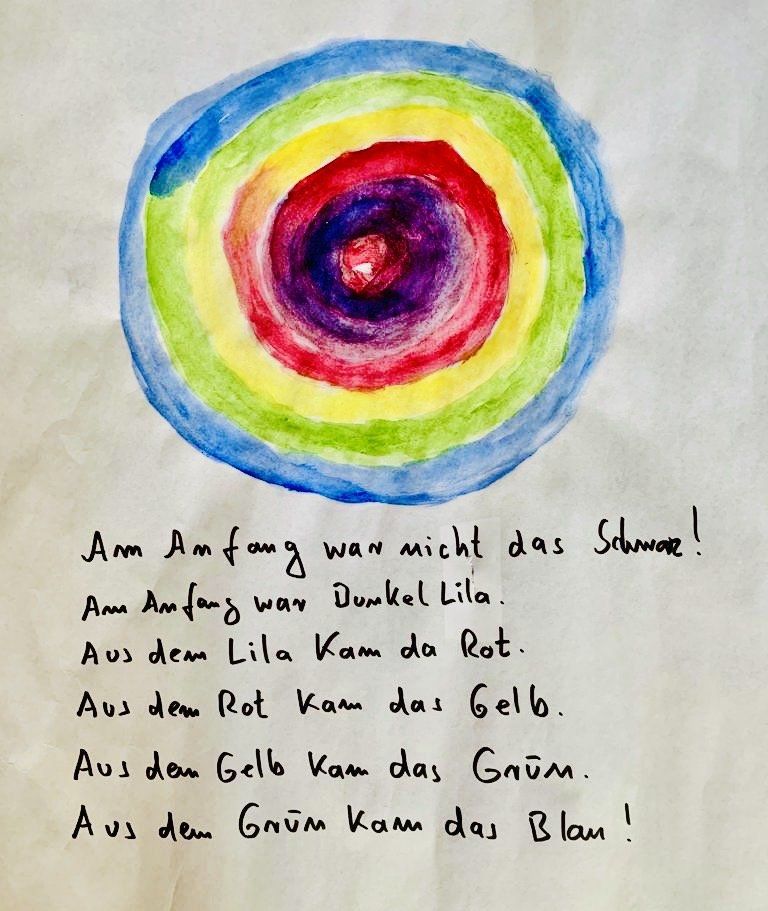 Am Anfang war nicht das Schwarz!
Am Anfang war Dunkel Lila.
Aus dem Lila Kam da Rot.
Aus dem Rot Kam das Gelb.
Aus dem Gelb Kam das Grün.
Aus dem Grün Kam das Blau!